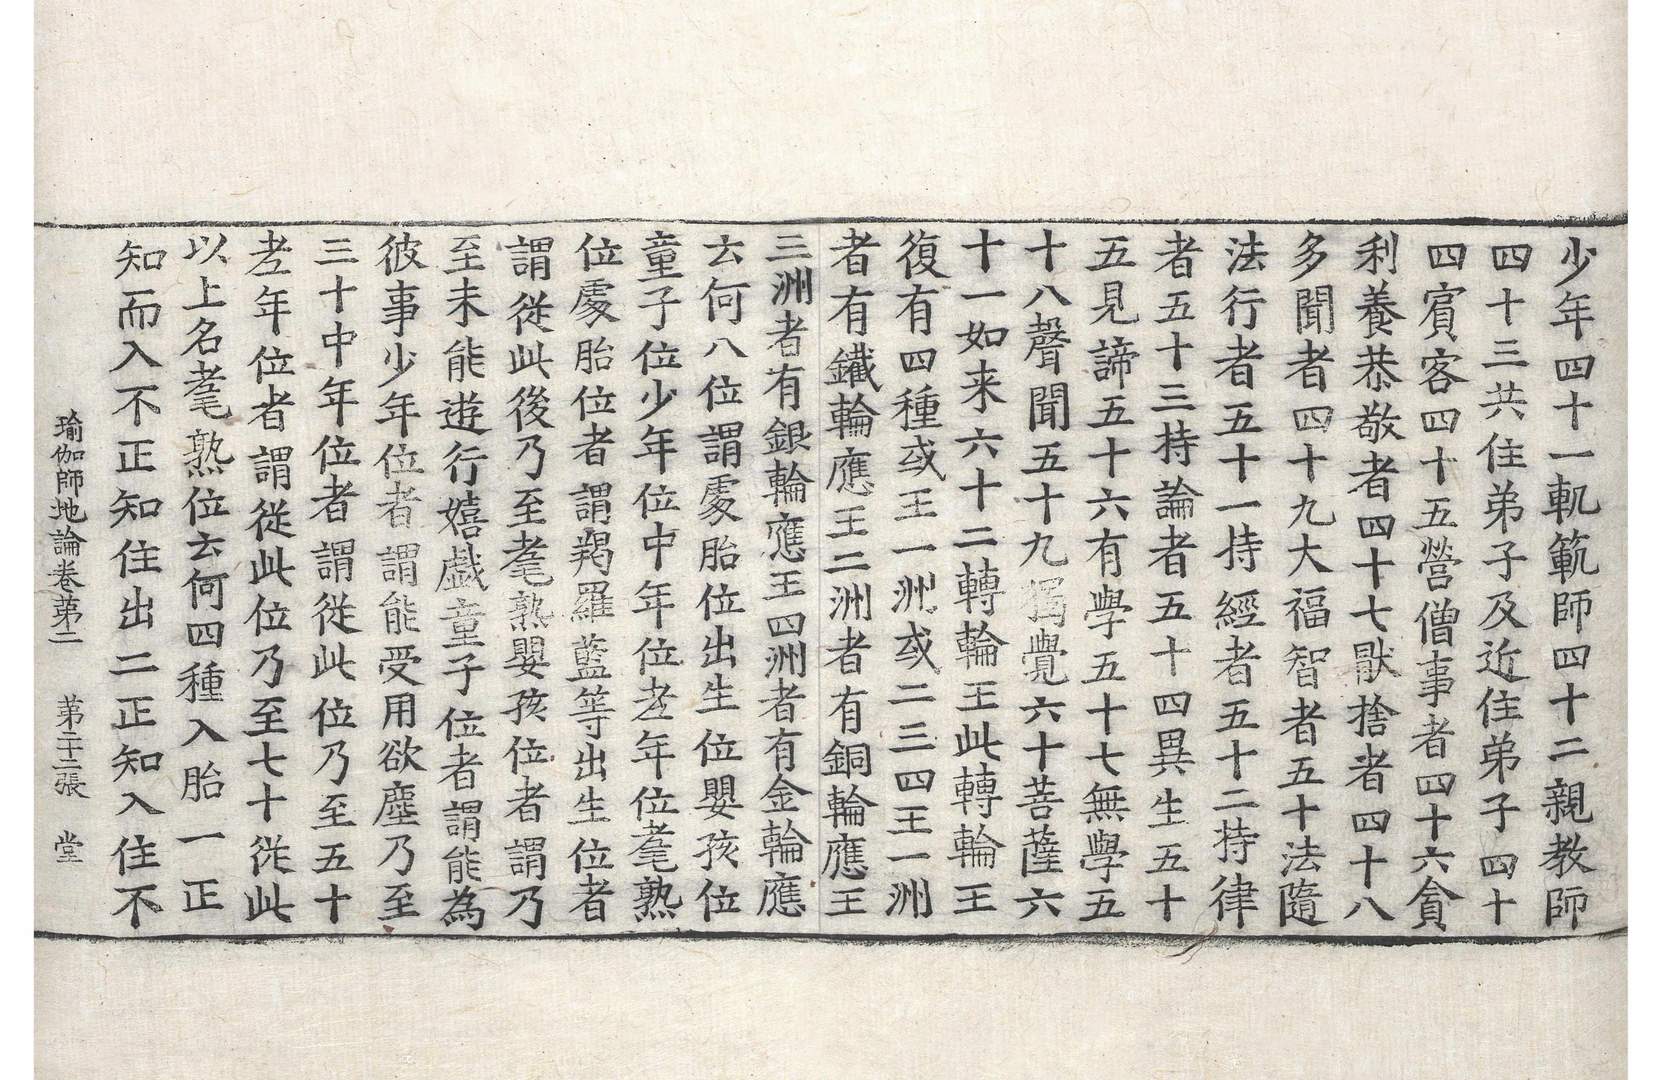 少年四十一軌範師四十二親教師
四十三共住弟子及近住弟子四十
四賓客四十五營僧事者四十六貪
利養恭敬者四十七猒捨者四十八
多聞者四十九大福智者五十法隨
法行者五十一持經者五十二持律
者五十三持論者五十四異生五十
五見諦五十六有學五十七無學五
十八聲聞五十九獨覺六十菩薩六
十一如来六十二轉輪王此轉輪王
復有四種或王一洲或二三四王一洲
者有鐵輪應王二洲者有銅輪應王
三洲者有銀輪應王四洲者有金輪應
云何八位謂處胎位出生位嬰孩位
童子位少年位中年位老年位耄熟
位處胎位者謂羯羅藍等出生位者
謂從此後乃至耄熟嬰孩位者謂乃
至未能遊行嬉戲童子位者謂能為
彼事少年位者謂能受用欲塵乃至
三十中年位者謂從此位乃至五十
老年位者謂從此位乃至七十從此
以上名耄熟位云何四種入胎一正
知而入不正知住出二正知入住不
瑜伽師地論卷第二 第二十二張 堂